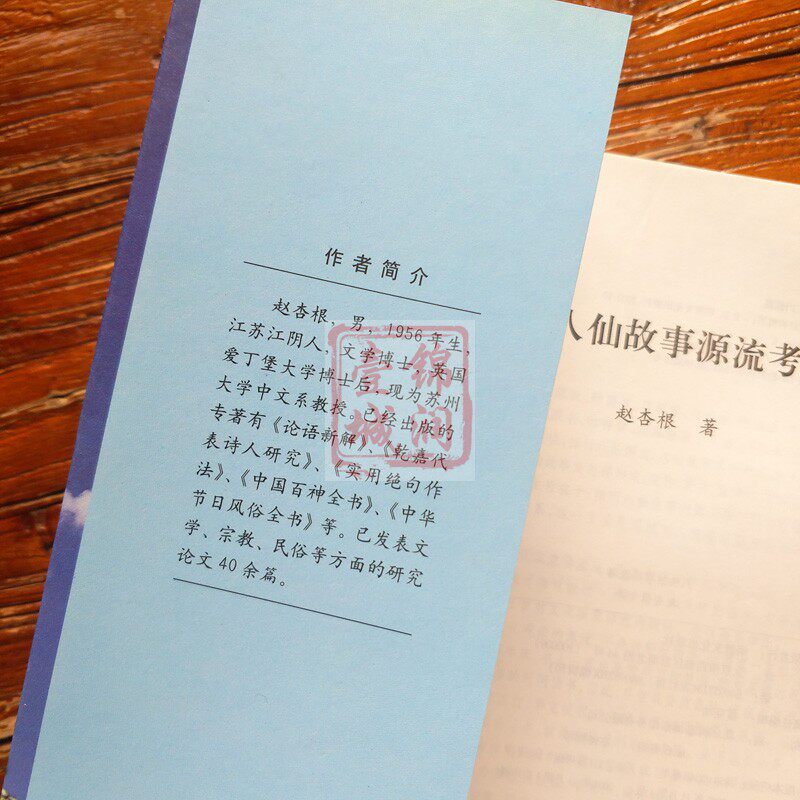 作者简介
赵杏根，男，1956年生，
江苏江阴人，文学博士，英国
爱丁堡大学博士后，现为苏州
大学中文系教授。已经出版的
专著有《论语新解》、《乾嘉代
表诗人研究》、《实用绝句作
法》、《中国百神全书》、《中华
节日风俗全书》等。已发表文
学、宗教、民俗等方面的研究
论文40余篇。
八仙故事源流考
赵杏根 著